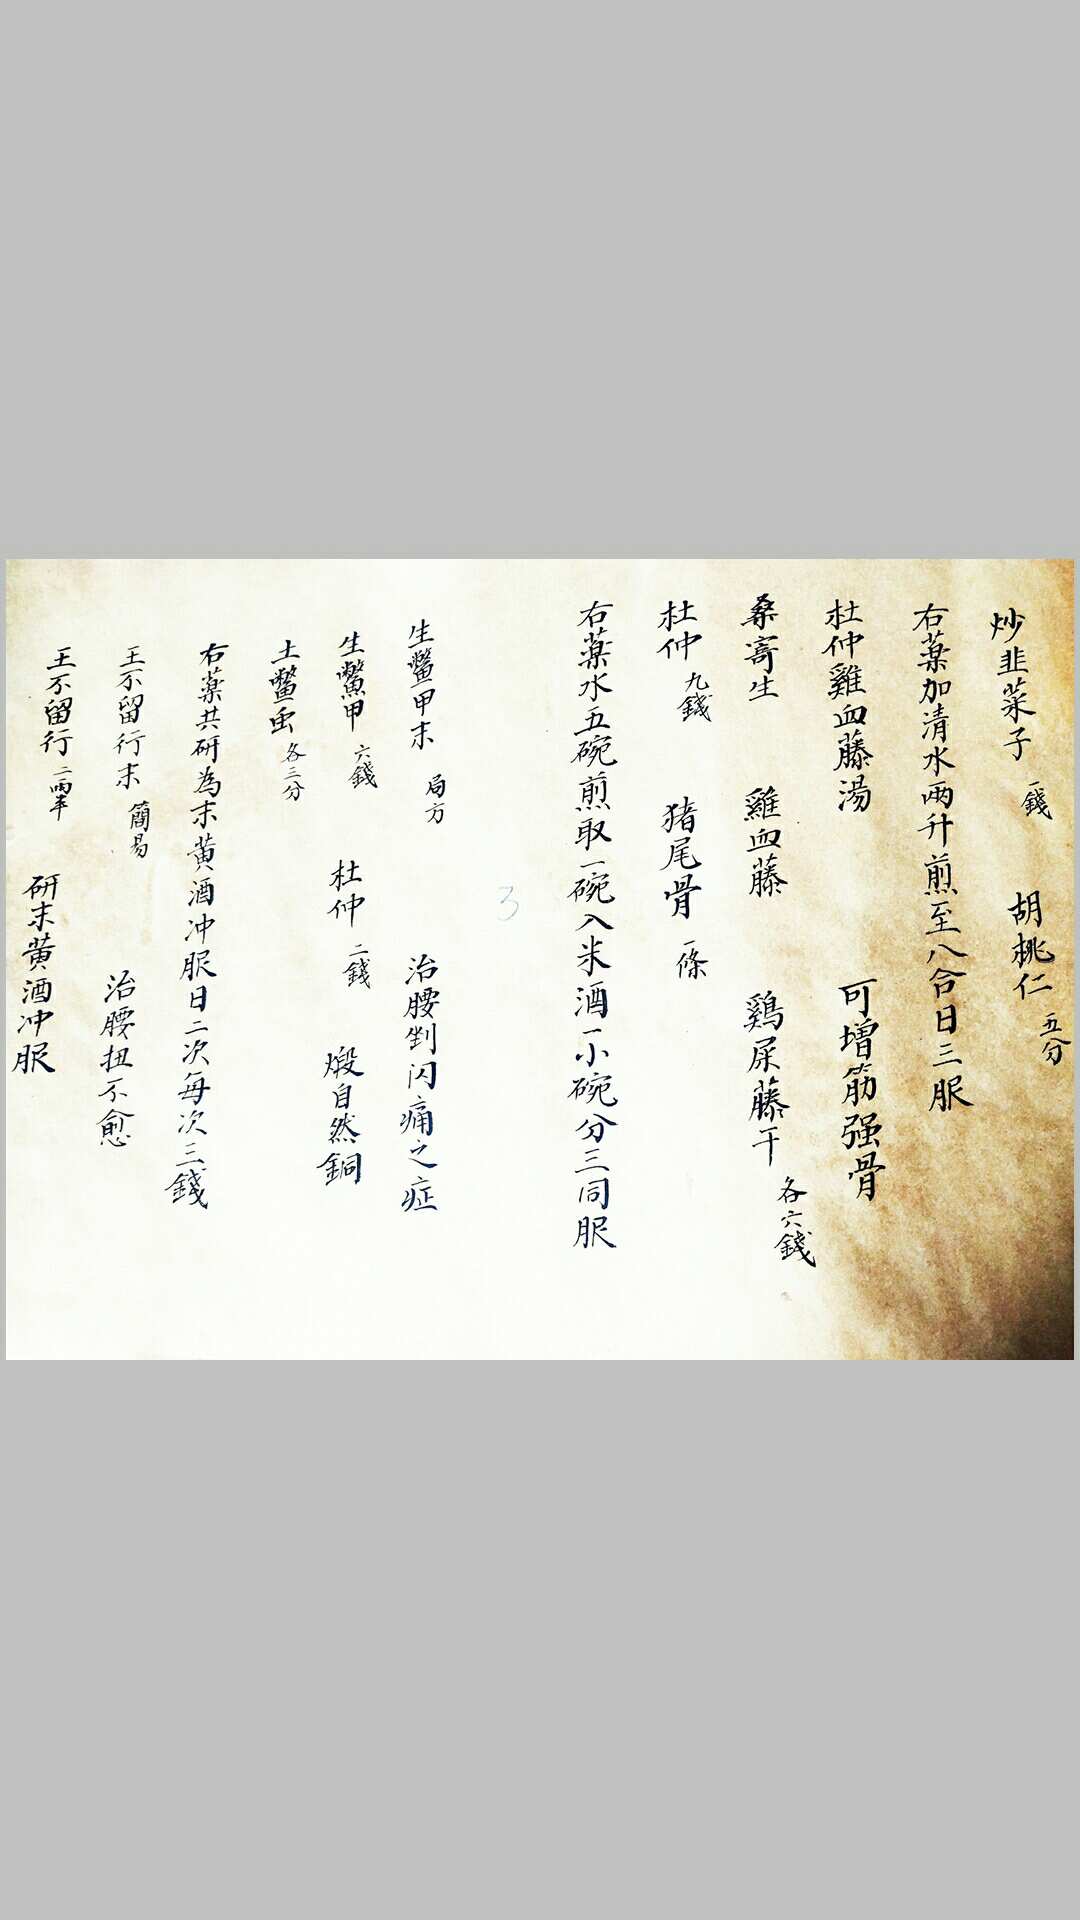 炒韭菜子 一錢 胡桃仁 五分
右藥加清水兩升煎至八合日三服
杜仲雞血藤湯 可增筋强骨
桑寄生 雞血藤 鷄屎藤干 各六錢
杜仲 九錢 猪尾骨 一條
右藥水五碗煎取一碗入米酒一小碗分三同服
3
生鱉甲末 局方 治腰剉闪痛之症
生鱉甲 六錢 杜仲 二錢 煅自然銅
土鱉虫 各三分
右藥共研為末黄酒冲服日二次每次三錢
王不留行末 簡易 治腰扭不愈
王不留行 二兩半 研末黄酒冲服